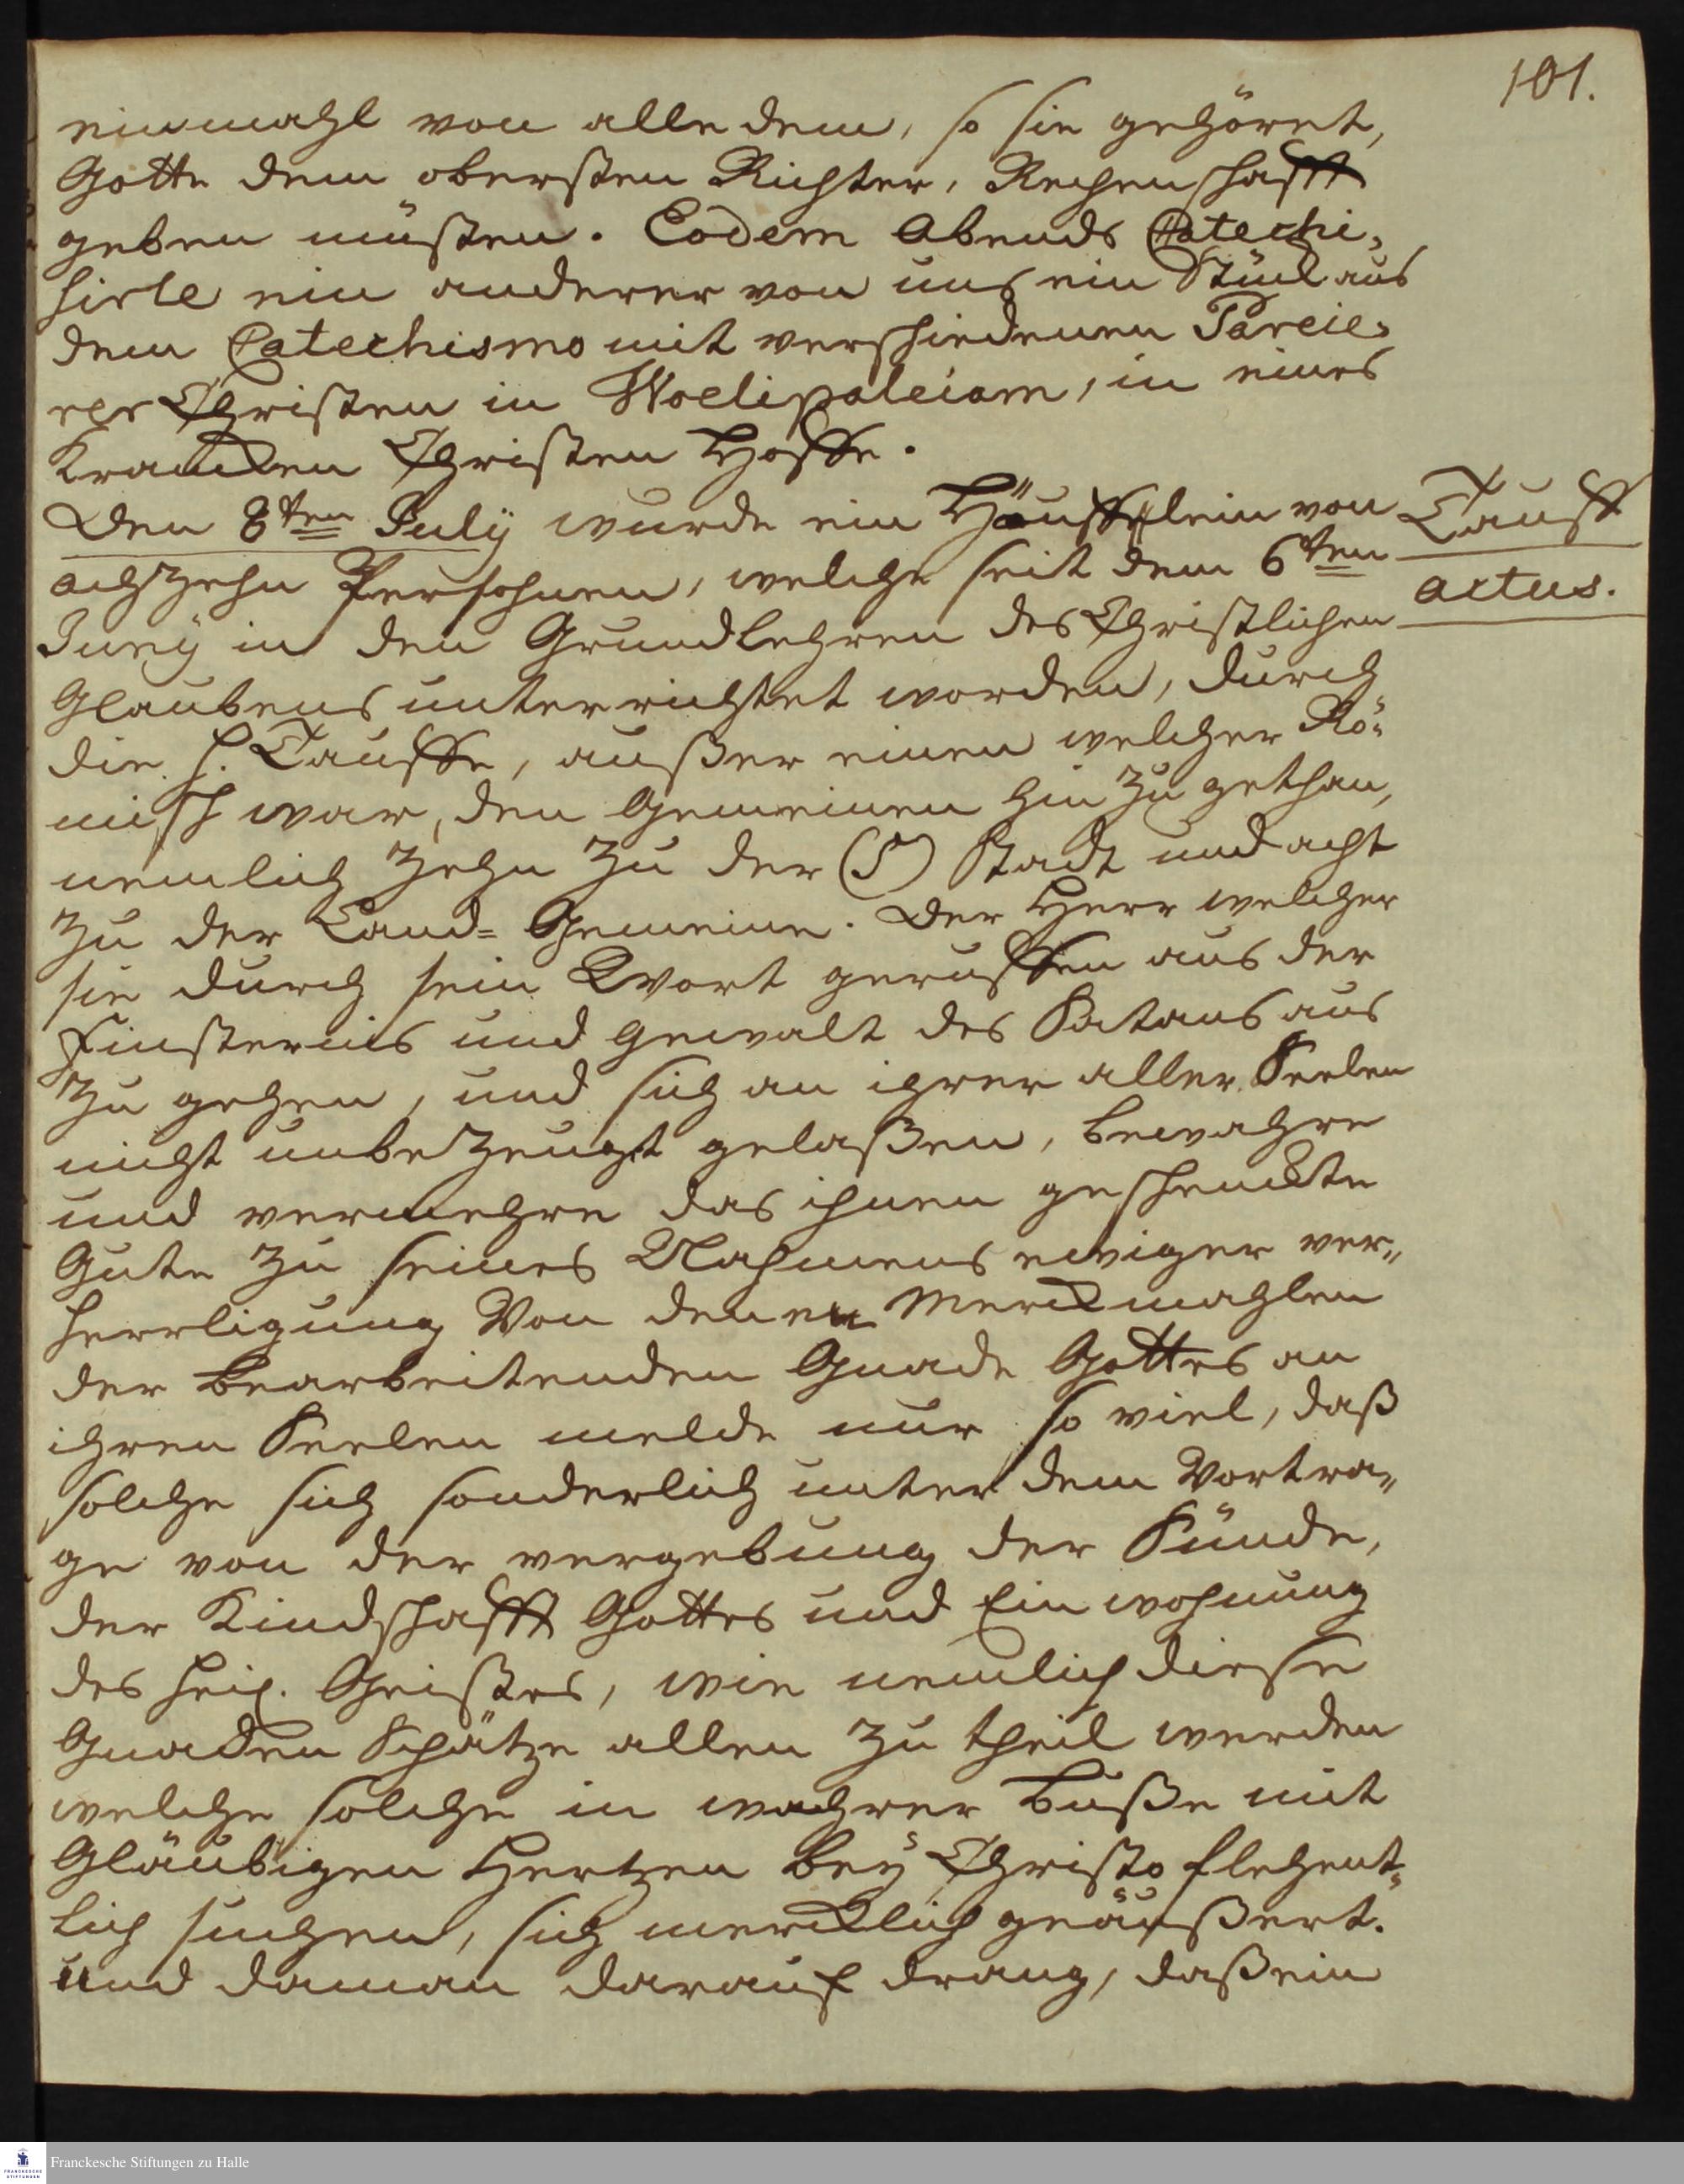 101.
einmahl von alle dem, so sie gehöret,
Gotte dem obersten Richter, Rechenschafft
geben müsten. Eodem Abends Catechi-
sirte ein anderer von uns ein Stück aus
dem Catechismo mit verschiedenen Pareie-
rer Christen in Woelipaleiam, in eines
Krancken Christen Hoffe.
Den 8ten July wurde ein Häufflein von
achzehn Persohnen, welche seit dem 6ten
Juny in den Grundlehren des Christlichen
Glaubens unterrichtet worden, durch
die H. Tauffe, außer einen welcher Rö-
misch war, den Gemeinen hin zu gethan,
nemlich zehn zu der Stadt und acht
zu der Land-Gemeine. Der Herr welcher
sie durch sein Wort geruffen aus der
Finsternis und Gewalt des Satans aus
zu gehen, und sich an ihrer aller Seelen
nicht unbezeugt gelaßen, bewahre
und vermehre das ihnen geschenckte
Gute zu seines Nahmens ewiger ver-
herrligung Von denen Merckmahlen
der bearbeitenden Gnade Gottes an
ihren Seelen melde nur so viel, daß
solche sich sonderlich unter dem Vortra-
ge von der vergebung der Sünde,
der Kindschafft Gottes und Einwohnung
des heil. Geistes, wie nemlich diese
Gnaden Schätze allen zu theil werden
welche solche in wahrer Buße mit
Gläubigen Hertzen bey Christo flehent-
lich suchen, sich mercklich geäußert.
Und da man darauf drang, daß ein
Tauff
actus.
Franckesche Stiftungen zu Halle